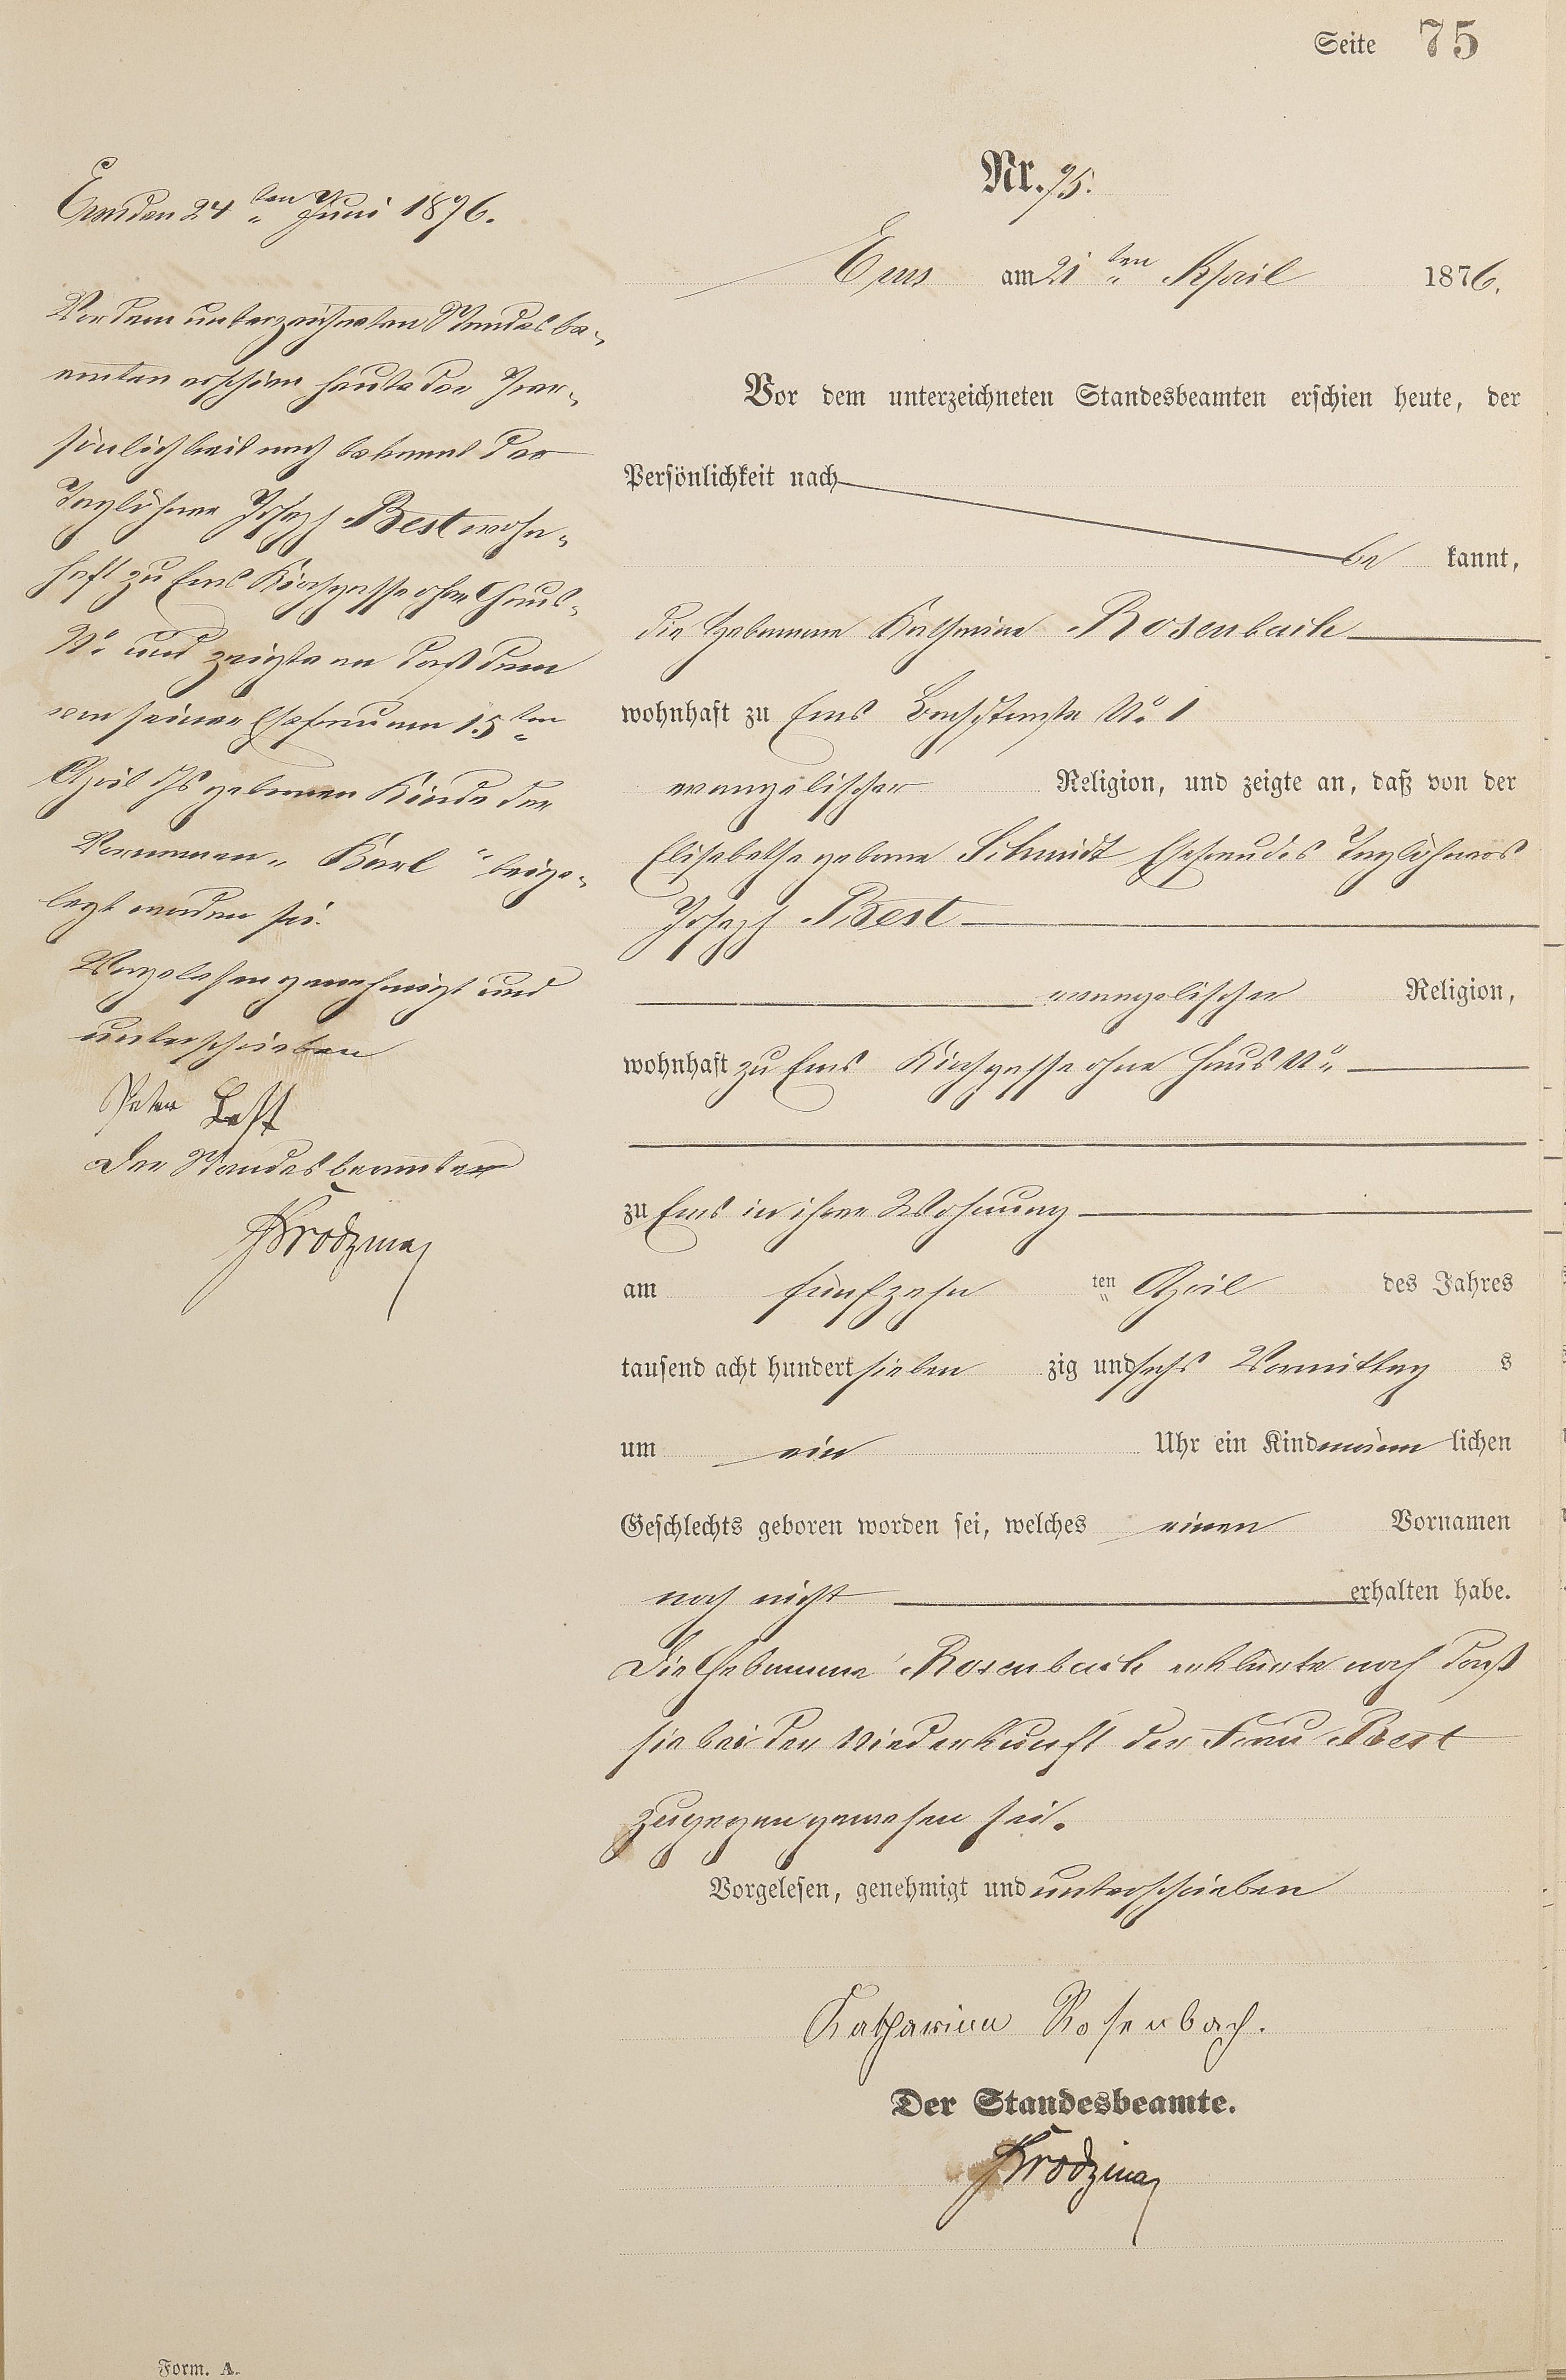 Seite 75
Nr. 75.
Ems am 21ten April 1876.
Vor dem unterzeichneten Standesbeamten erschien heute, der
Persönlichkeit nach
be kannt,
die Hebamme Katharina Rosenbach
wohnhaft zu Ems Bachstraße No. 1
evangelischer Religion, und zeigte an, daß von der
Elisabetha geborne Schmidt Ehefrau des Taglöhners
Joseph Best
evangelischer Religion,
wohnhaft zu Ems Kirchgasse ohne Haus No.
zu Ems in ihrer Wohnung
am fünfzehn ten April des Jahres
tausend acht hundert sieben zig und sechs Vormittag s
um ein Uhr ein Kind männ lichen
Geschlechts geboren worden sei, welches einen Vornamen
noch nicht erhalten habe.
Die Hebamme Rosenbach erklärte noch daß
sie bei der Niederkunft der Frau Best
zugegen gewesen sei.
Vorgelesen, genehmigt und unterschrieben
Katharina Rosenbach.
Der Standesbeamte.
Ems den 24ten Juni 1876.
Vor dem unterzeichneten Standesbe-
amten erschien heute der Per-
sönlichkeit nach bekannt der
Taglöhner Joseph Best wohn-
haft zu Ems Kirchgasse ohne Haus-
No. und zeigte an daß dem
von seiner Ehefrau am 15ten
April d Js gebornen Kinde der
Vornamen „Karl" beige-
legt worden sei.
Vorgelesen genehmigt und
unterschrieben
Peter Best
Der Standesbeamte
Form. A.